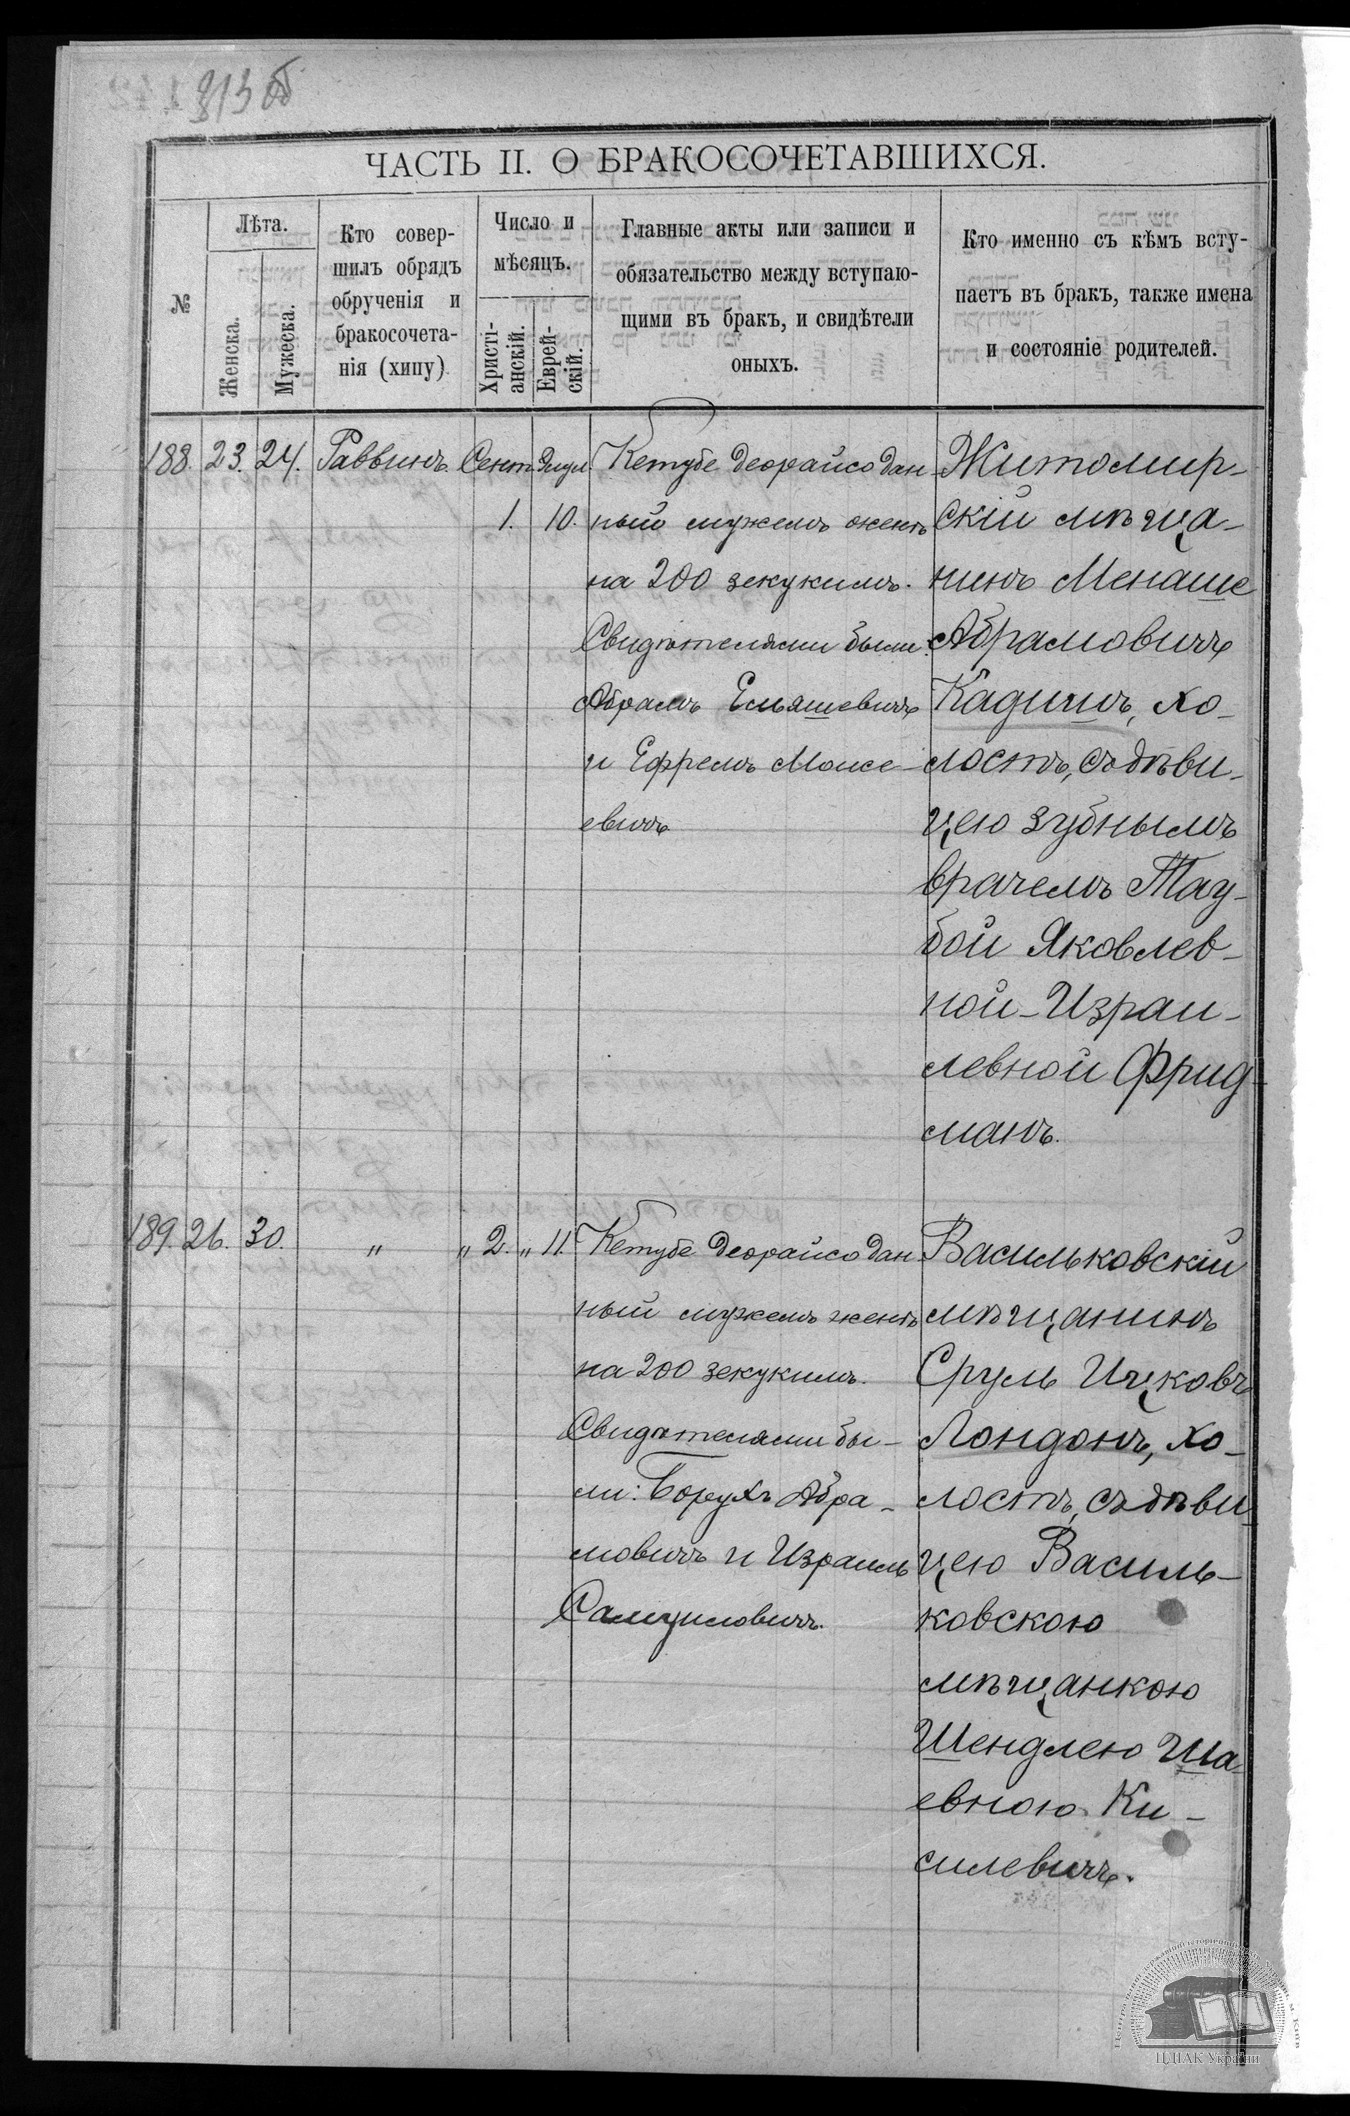 313 об
ЧАСТЬ II. О БРАКОСОЧЕТАВШИХСЯ.
№
Лѣта.
Женска.
Мужеска.
Кто совер-
шилъ обрядъ
обрученія и
бракосочета-
нія (хипу)
Число и
мѣсяцъ.
Христі-
анскій.
Еврей-
скій.
Главные акты или записи и
обязательство между вступаю-
щими въ бракъ, и свидѣтели
оныхъ.
Кто именно съ кѣмъ всту-
паетъ въ бракъ, также имена
и состояніе родителей.
188. 23. 24. Раввинъ. Сент. Элул.
1. 10.
Кетубе деорайсо дан-
ный мужемъ женѣ
на 200 зекукимъ.
Свидѣтелями были:
Абрамъ Ельяшевичъ
и Ефремъ Моисе-
евичъ
Житомир-
скій мѣща-
нинъ Менаше
Абрамовичъ
Кадишъ, хо-
лостъ, съ дѣви-
цею зубнымъ
врачемъ Тау-
бой Яковлев-
ной-Изаи-
левной Фрид-
манъ.
189. 26. 30. " " 2. " 11.
Кетубе деорайсо дан-
ный мужемъ женѣ
на 200 зекукимъ.
Свидѣтелями бы-
ли: Борухъ Абра-
мовичъ и Израиль
Самуиловичъ.
Васильковскій
мѣщанинъ
Сруль Ицковъ
Лондонъ, хо-
лостъ, съ дѣви-
цею Василь-
ковскою
мѣщанкою
Шендлею Ша-
евною Ки-
силевичъ.
ЦДІАК України